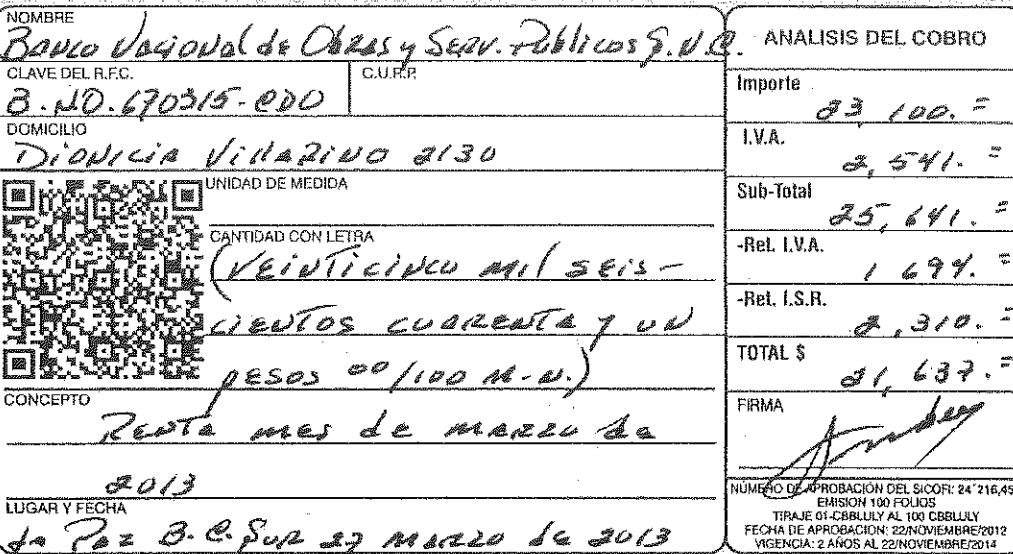 NOMBRE
Banco Nacional de Obras y Serv. Públicos S.N.C.
CLAVE DEL R.F.C.
C.U.R.P.
B.NO.670315-CDO
DOMICILIO
Dionicia Villarino 2130
UNIDAD DE MEDIDA
CANTIDAD CON LETRA
(Veinticinco mil seis-
cientos cuarenta y un
pesos 00/100 M.N.)
CONCEPTO
Renta mes de marzo de
2013
LUGAR Y FECHA
La Paz B.C.Sur 27 marzo de 2013
ANALISIS DEL COBRO
Importe
23 100. =
I.V.A.
2,541. =
Sub-Total
25,641. =
-Ret. I.V.A.
1 694. =
-Ret. I.S.R.
2,310. =
TOTAL $
21,637. =
FIRMA
NÚMERO DE APROBACIÓN DEL SICOFI: 24´216,45
EMISION 100 FOLIOS
TIRAJE 01-CBBLULY AL 100 CBBLULY
FECHA DE APROBACION: 22/NOVIEMBRE/2012
VIGENCIA: 2 AÑOS AL 22/NOVIEMBRE/2014